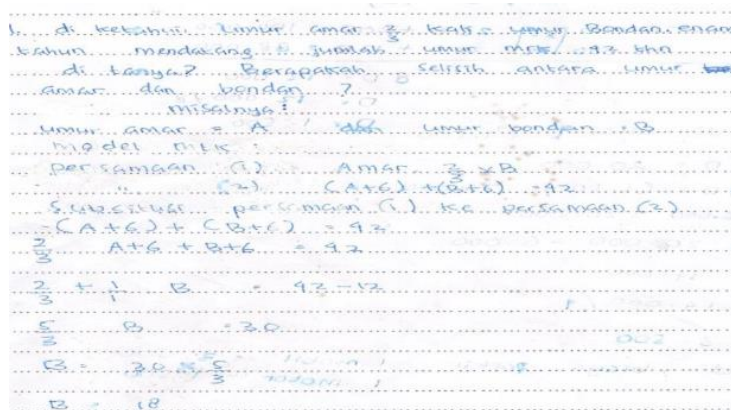 1. di ketahui: Umur amar 2/3 kali umur Bondan. enam
tahun mendatang jumlah umur mrk 42 thn
di tanya? Berapakah selisih antara umur
amar dan bondan ?
misalnya :
umur amar = A dan umur bondan = B
model mtk :
persamaan (1) Amar 2/3 x B
" (2) (A+6) + (B+6) = 42
Subsitusi persamaan (1) ke persamaan (2)
(A+6) + (B+6) = 42
2/3 A+6 + B+6 = 42
2/3 + 1/1 B = 42-12
5/3 B = 30
B = 30 x 5/3
B = 18